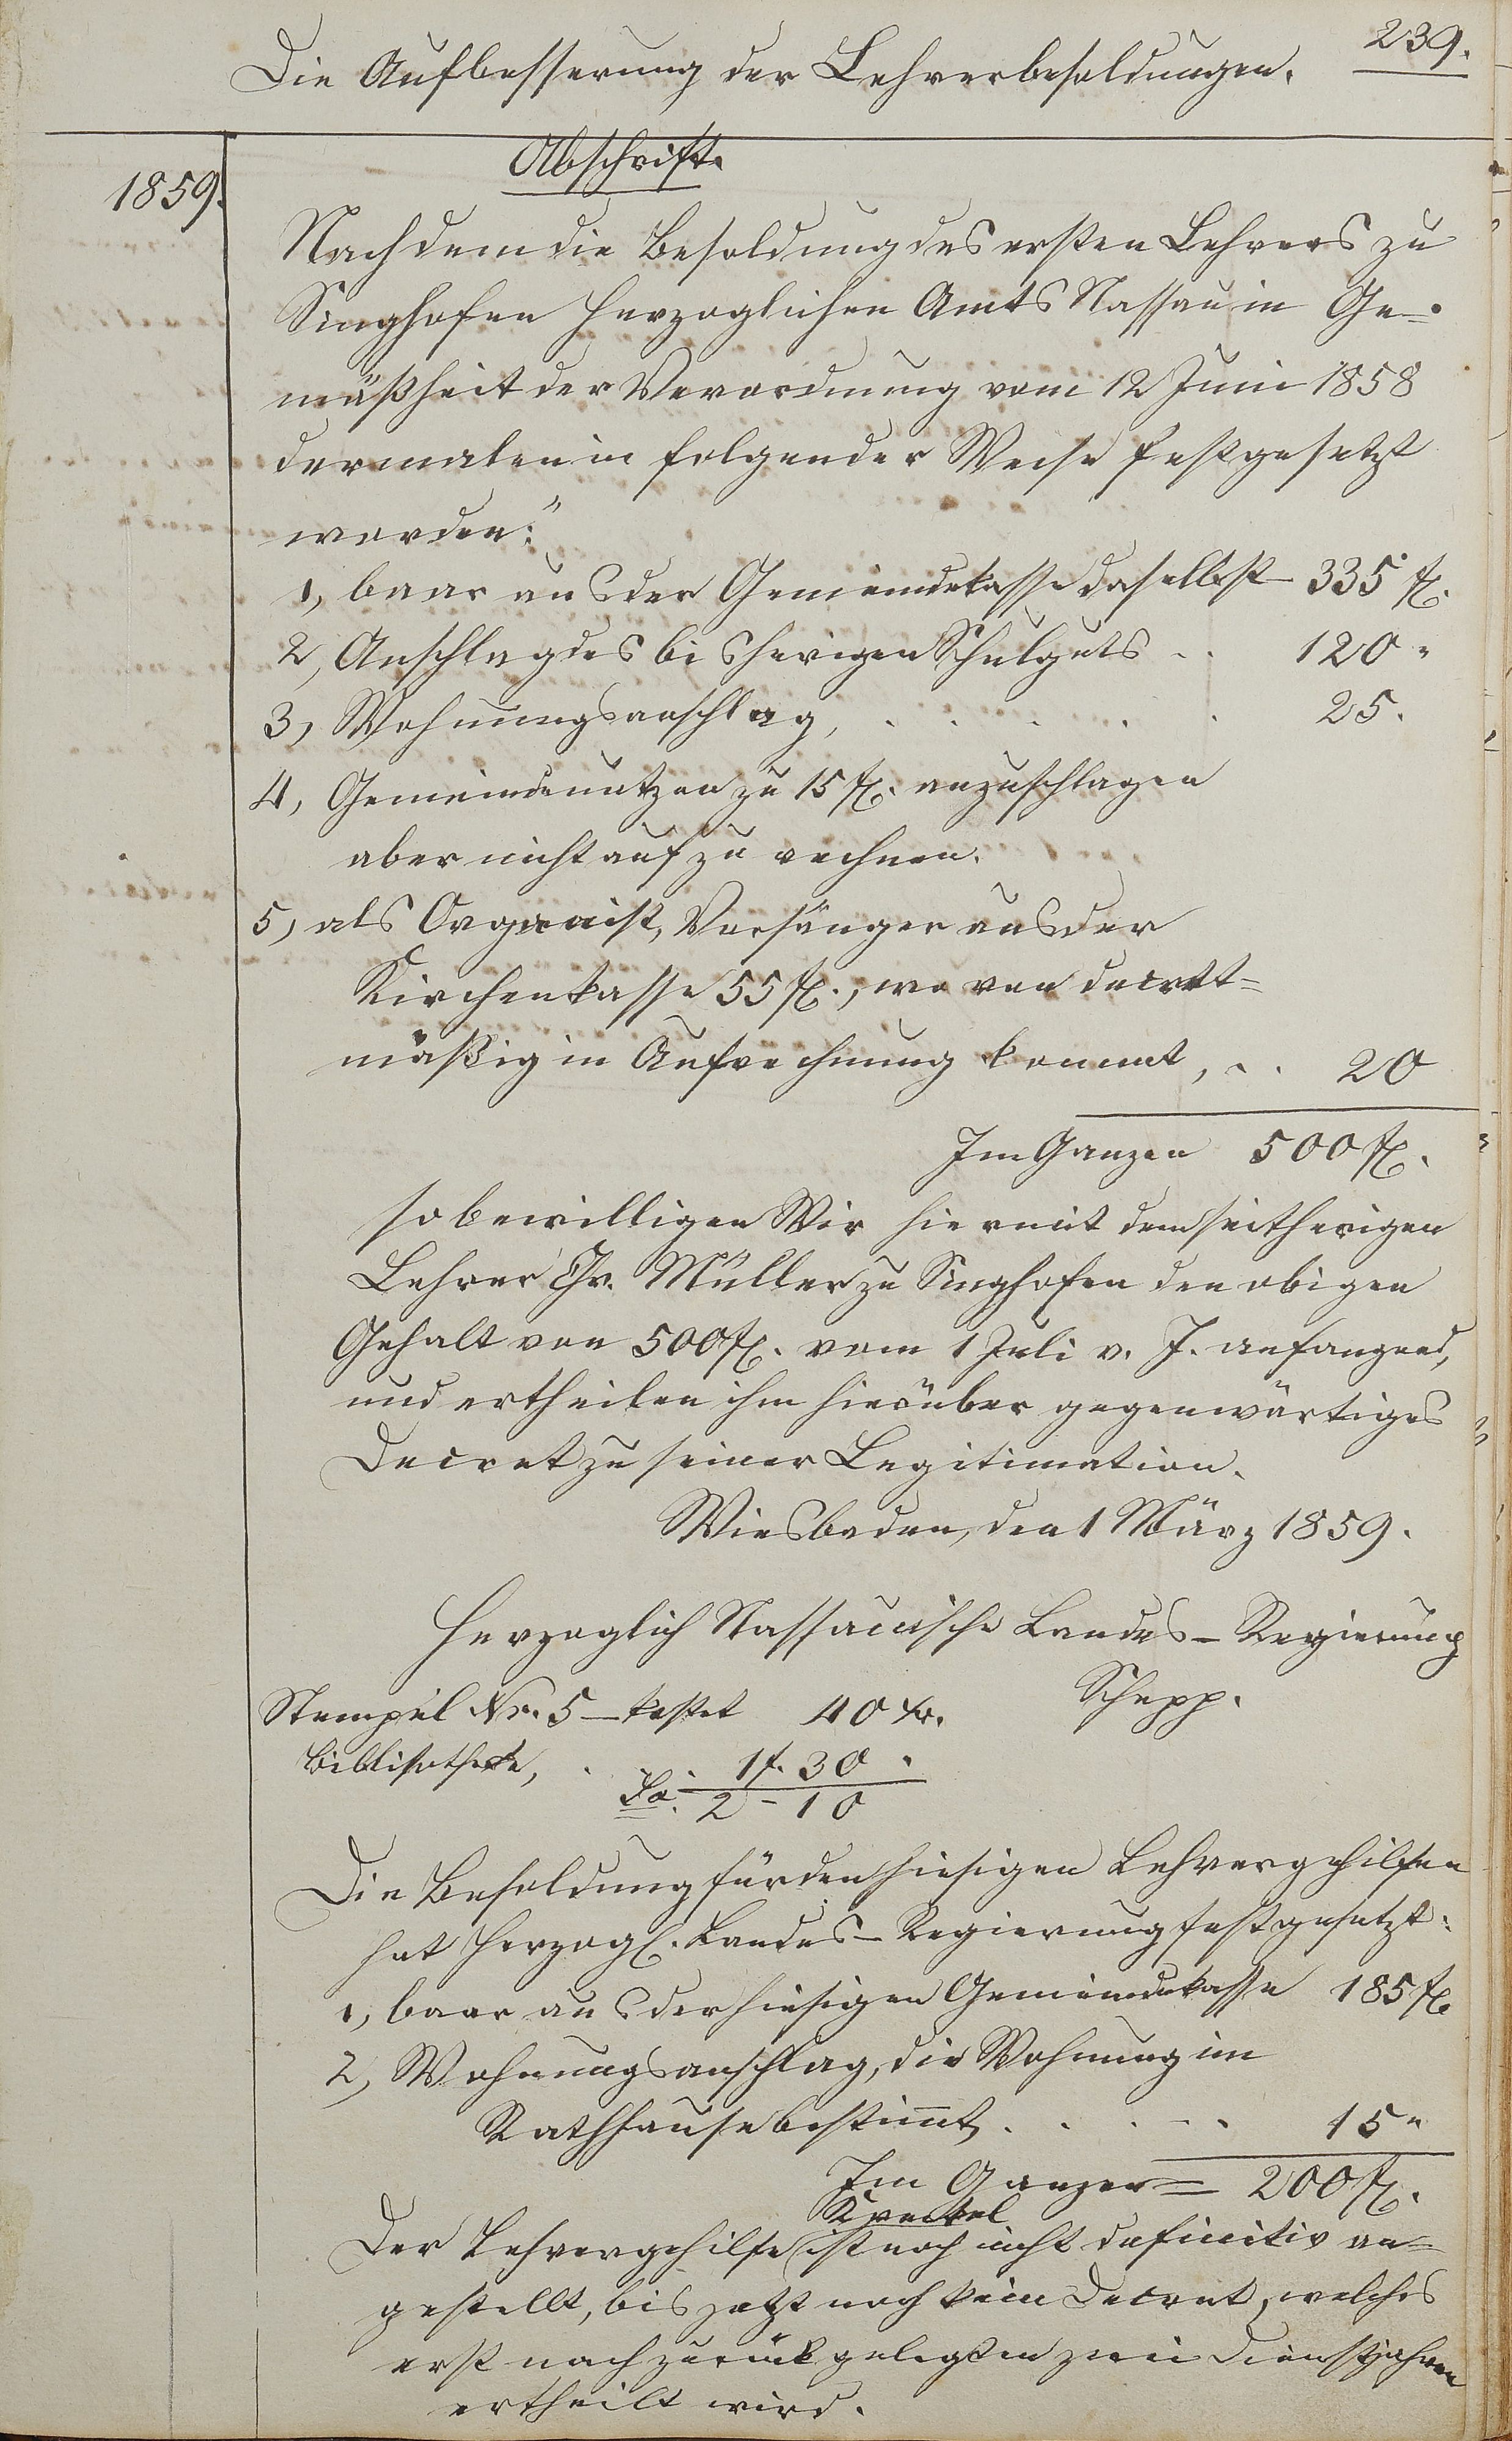 239.
Die Aufbesserung der Lehrerbesoldungen.
Abschrift.
1859.
Nachdem die Besoldung des ersten Lehrers zu
Singhofen Herzoglichen Amts Nassau in Ge=
mäßheit der Verordnung vom 12 Juni 1858
dermalen in folgender Weise festgesetzt
worden:"
1, baar aus der Gemeindekasse daselbst 335 fl.
2, Anschlag des bisherigen Schulguts . . 120 "
3, Wohnungsanschlag, . . . . . 25.
4, Gemeindenutzen zu 15 fl. anzuschlagen
aber nicht aufzurechnen.
5, als Organist, Vorsänger aus der
Kirchenkasse 55 fl., wovon decret=
mäßig in Aufrechnung kommt, . . 20
Im Ganzen 500 fl.
so bewilligen Wir hiermit dem seitherigen
Lehrer Chr. Müller zu Singhofen den obigen
Gehalt von 500 fl. vom 1 Juli v. J. anfangend,
und ertheilen ihm hierüber gegenwärtiges
Decret zu seiner Legitimation.
Wiesbaden, den 1 März 1859.
Herzoglich Nassauische Landes-Regierung
Schepp.
Stempel Nr. 5 – kostet 40 kr.
Bibliothek, . . . 1 f. 30 "
Sa. 2 – 10
Die Besoldung für den hiesigen Lehrergehilfen
hat Herzogl. Landes-Regierung festgesetzt:
1, baar aus der hiesigen Gemeindekasse 185 fl
2, Wohnungsanschlag, die Wohnung im
Rathhause bestimmt, . . . . . 15 "
Im Ganzen = 200 fl.
Der Lehrergehilfe ist noch nicht definitiv an=
gestellt, bis jetzt noch kein Decret, welches
erst nach zurückgelegten zwei Dienstjahren
ertheilt wird.